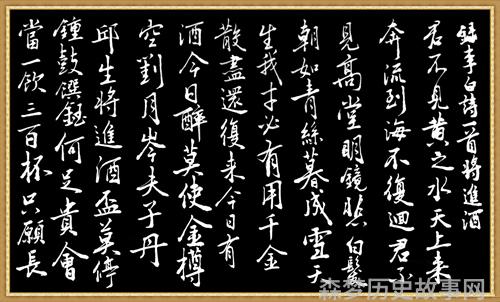 録李白詩一首将進酒
君不見黄之水天上来
奔流到海不復迴君不
見高堂明鏡悲白髮
朝如青絲暮成雪天
生我才必有用千金
散盡還復来今日有
酒今日醉莫使金樽
空對月岑夫子丹
邱生將進酒盃莫停
鍾鼓饌鈺何足貴會
當一飲三百杯只願長
历史故事网